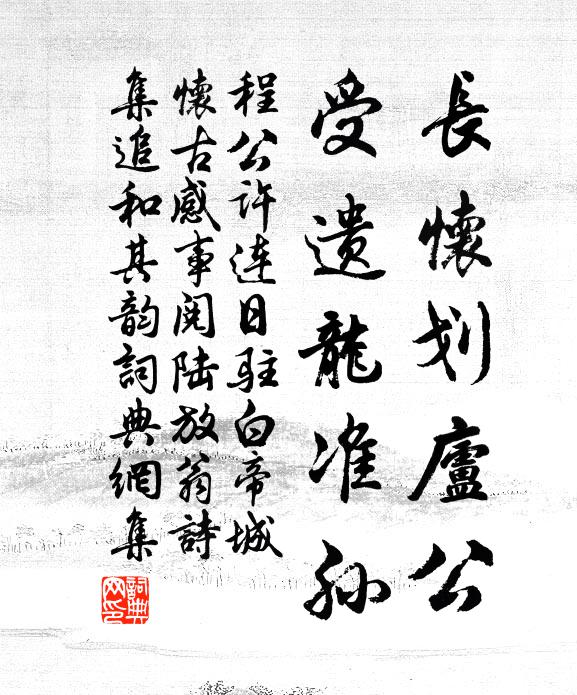 長懷划廬公
受遺龍准孙
程公许連日驻白帝城
懷古感事阅陆放翁詩
集追和其韵詞典網集
詞典網印